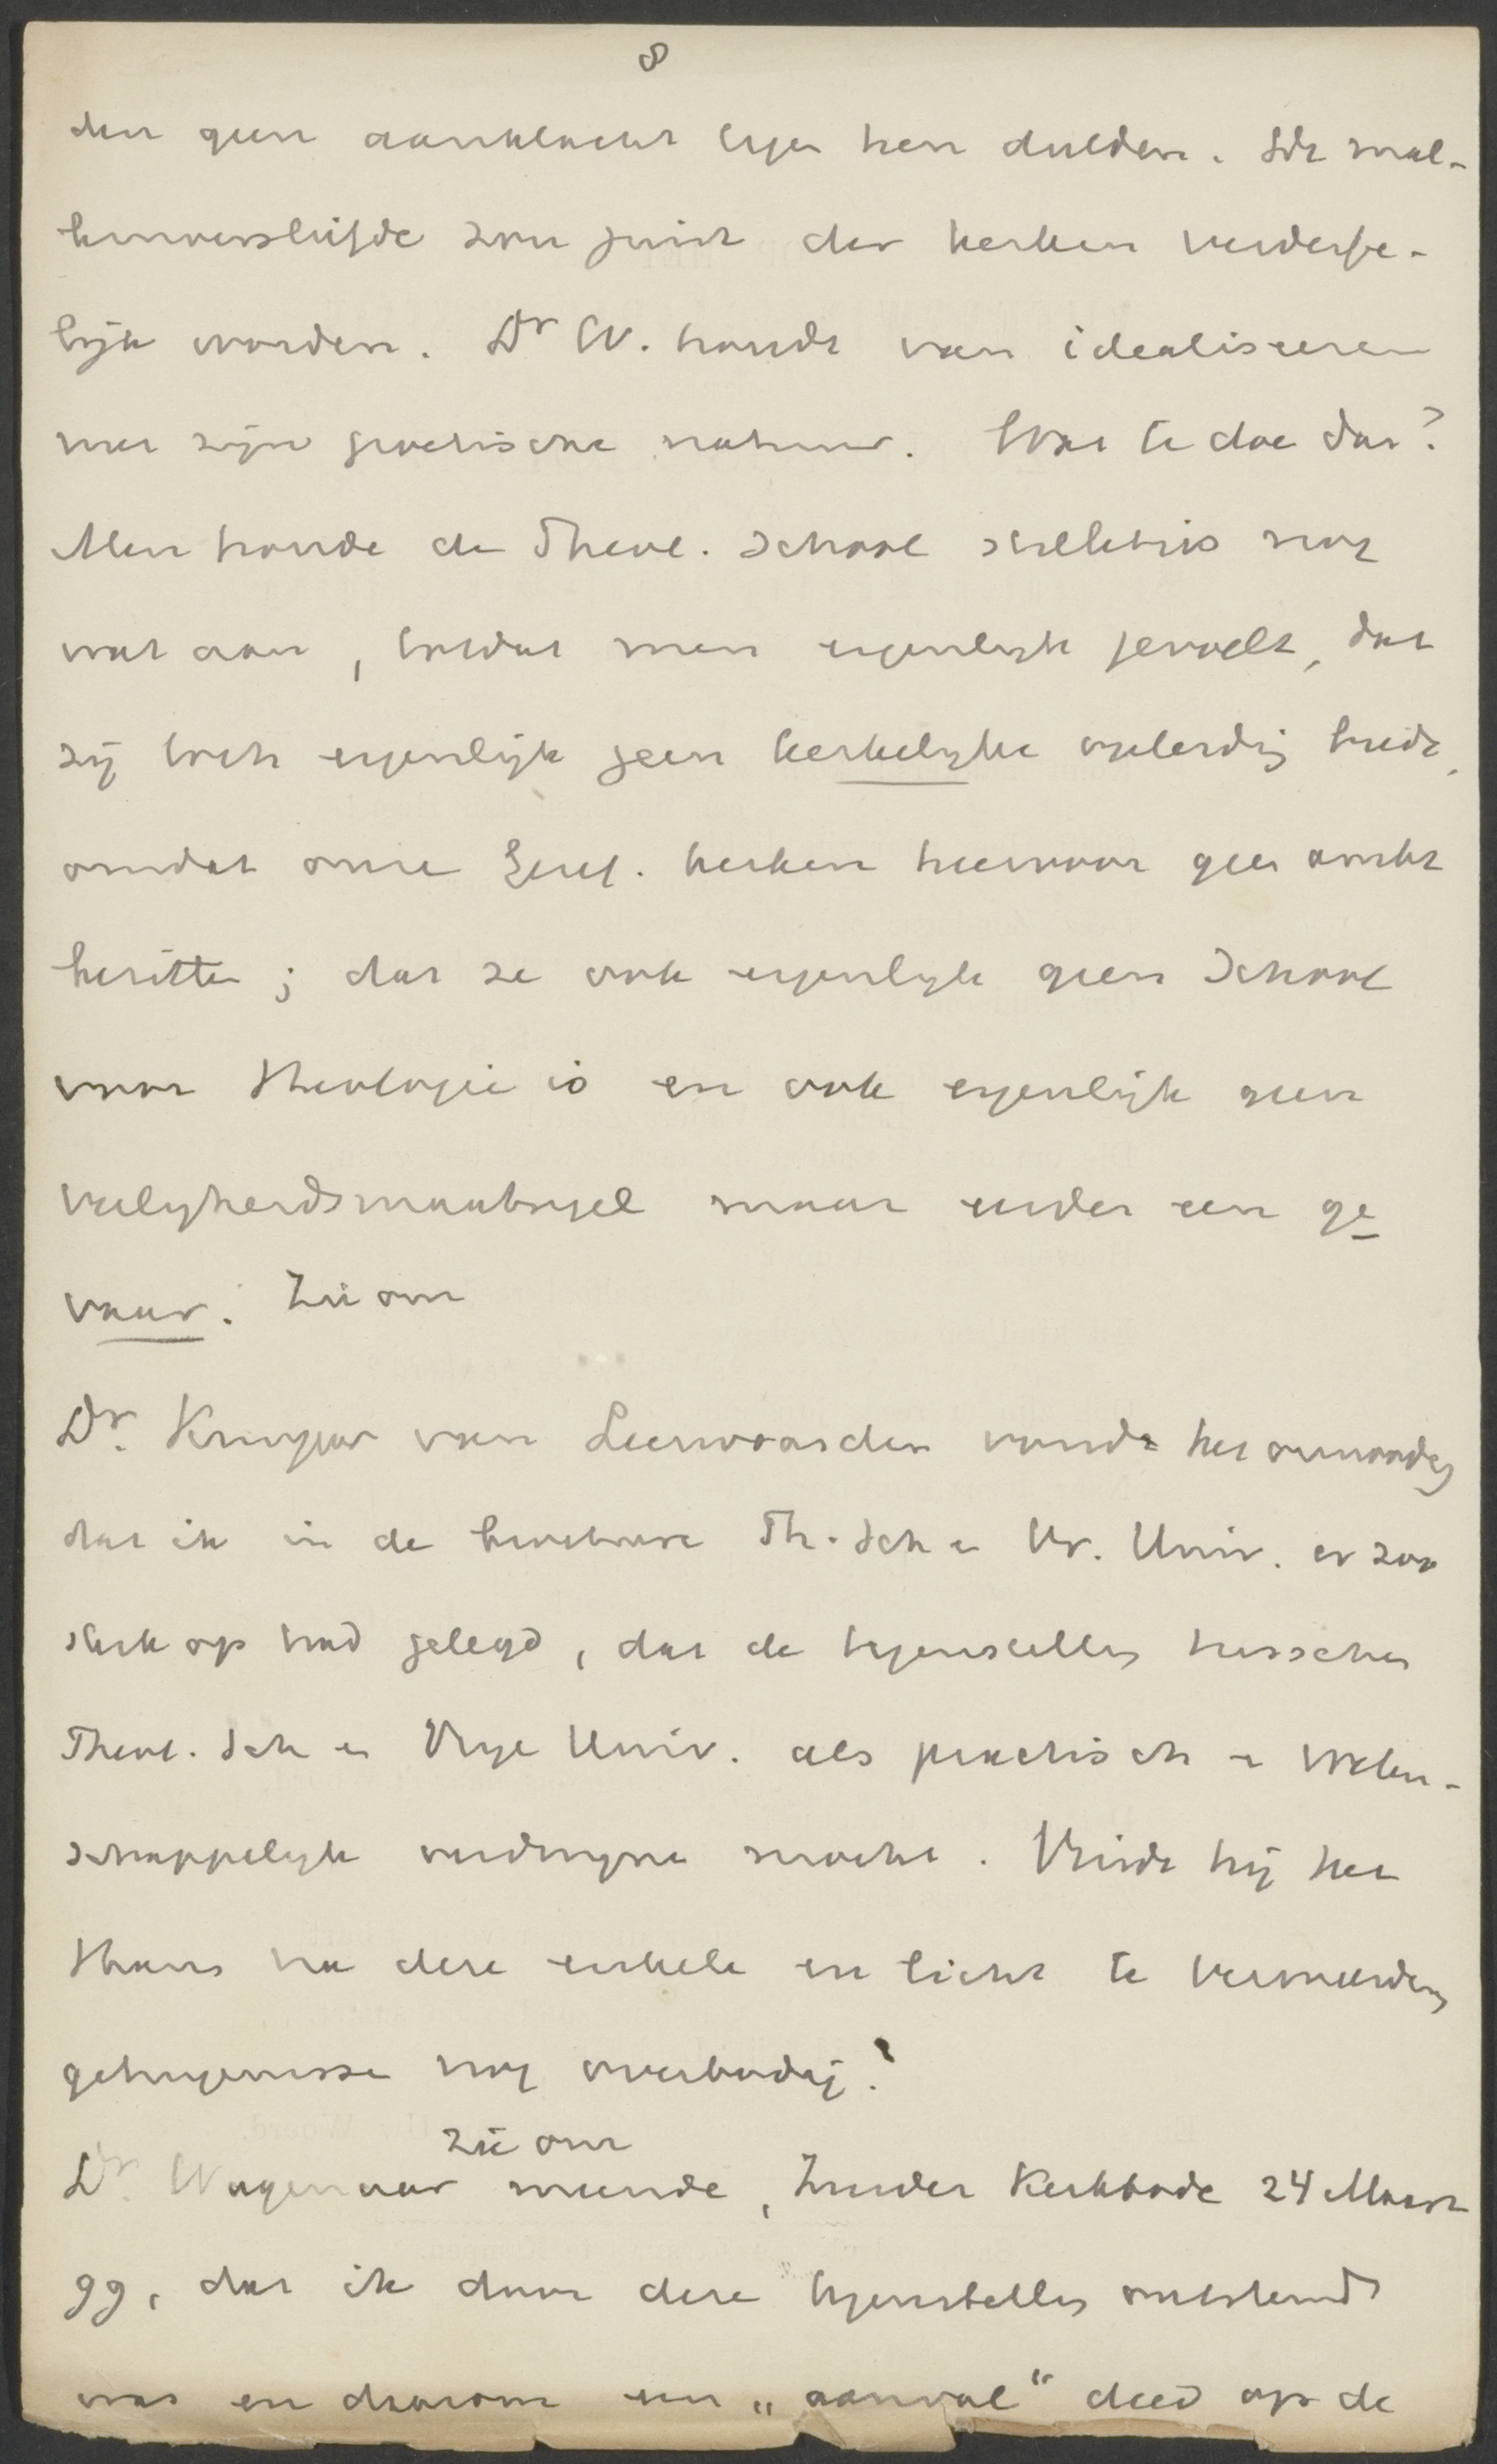 8
den geen aanklacht tegen hen dulden. Die mal-
kanversliefde zou juist der kerken verderfe-
lijk worden. Dr W. houdt van idealiseeren
met zijn poetische natuur. Wat te doe dan?
Men houde de Theol. School stilletjes nog
wat aan, totdat men eigenlijk gevoelt, dat
zij toch eigenlijk geen kerkelijke opleiding biedt,
omdat onze Geref. kerken hiervoor geen ambt
bezitten; dat ze ook eigenlijk geen School
voor theologie is en ook eigenlijk geen
veiligheidsmaatregel maar eerder een ge
vaar. Zie om
Dr. Kuyper van Leeuwarden vondt het onnoodig
dat ik in de brochure Th. Sch en Vr. Univ. er zoo
sterk op had gelegd, dat de tegenstelling tusschen
Theol. Sch en Vrije Univ. als practisch en weten-
schappelijk verdwijnen mocht. Vindt hij het
thans na deze enkele en licht te vermeerderen
getuigenissen nog overbodig?
Zie om
Dr. Wagenaar meende, Zuider Kerkbode 24 Maart
99, dat ik door deze tegenstelling ontstemd
was en daarom een „aanval" deed op de